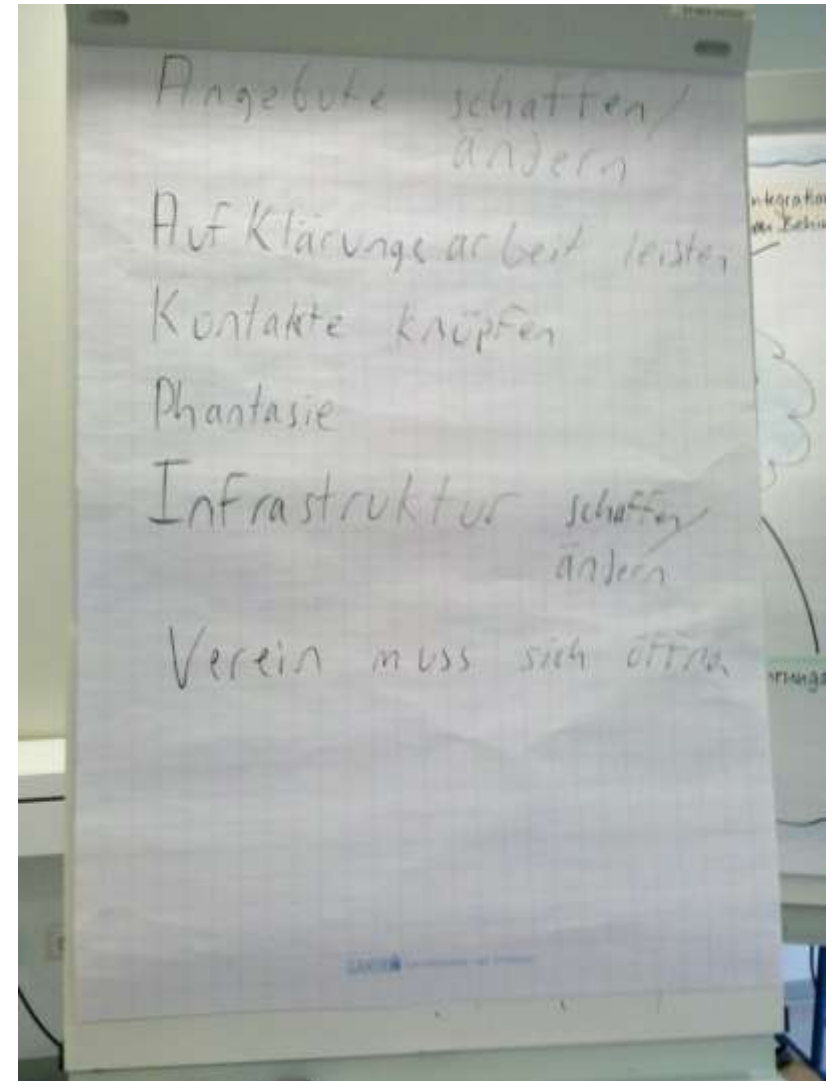 Angebote schaffen/
ändern
Aufklärungsarbeit leisten
Kontakte knüpfen
Phantasie
Infrastruktur schaffen/
ändern
Verein muss sich öffnen